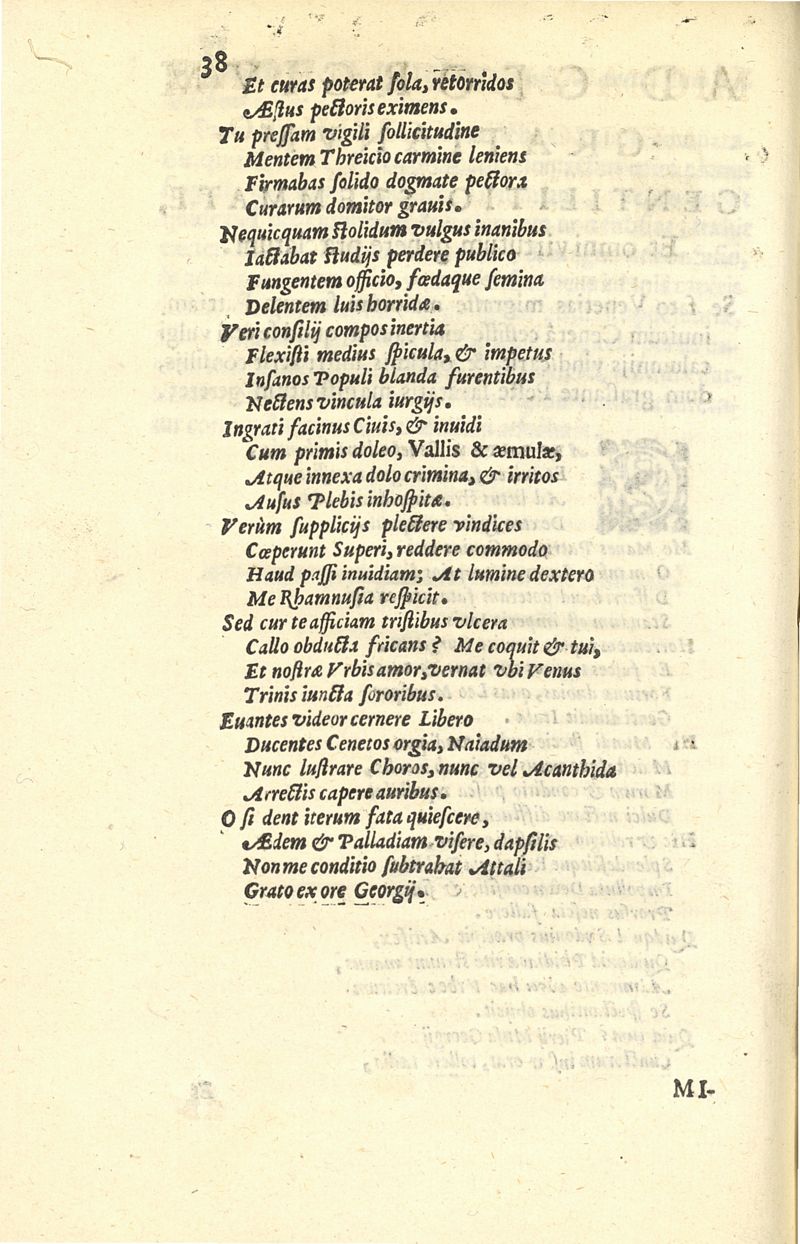 38
Et curas poterat ſola, retorridos
Æſtus pectoris eximens.
Tu preſſam vigili ſollicitudine
Mentem Threicio carmine leniens
Firmabas ſolido dogmate pectora
Curarum domitor grauis.
Nequicquam ſtolidum vulgus inanibus
Iactabat ſtudijs perdere publico
Fungentem officio, fœdaque ſemina
Delentem luis horridæ.
Veri conſilij compos inertia
Flexiſti medius ſpicula, & impetus
Inſanos Populi blanda furentibus
Nectens vincula iurgijs.
Ingrati facinus Ciuis, & inuidi
Cum primis doleo, Vallis & æmulæ,
Atque innexa dolo crimina, & irritos
Auſus Plebis inhoſpitæ.
Verùm ſupplicijs plectere vindices
Cœperunt Superi, reddere commodo
Haud paſſi inuidiam; At lumine dextero
Me Rhamnuſia reſpicit.
Sed cur te afficiam triſtibus vlcera
Callo obducta fricans? Me coquit & tui,
Et noſtræ Vrbis amor, vernat vbi Venus
Trinis iuncta ſororibus.
Euantes videor cernere Libero
Ducentes Cenetos orgia, Naiadum
Nunc luſtrare Choros, nunc vel Acanthida
Arrectis capere auribus.
O ſi dent iterum fata quieſcere,
Ædem & Palladiam viſere, dapſilis
Non me conditio ſubtrahat Attali
Grato ex ore Georgij.
MI-